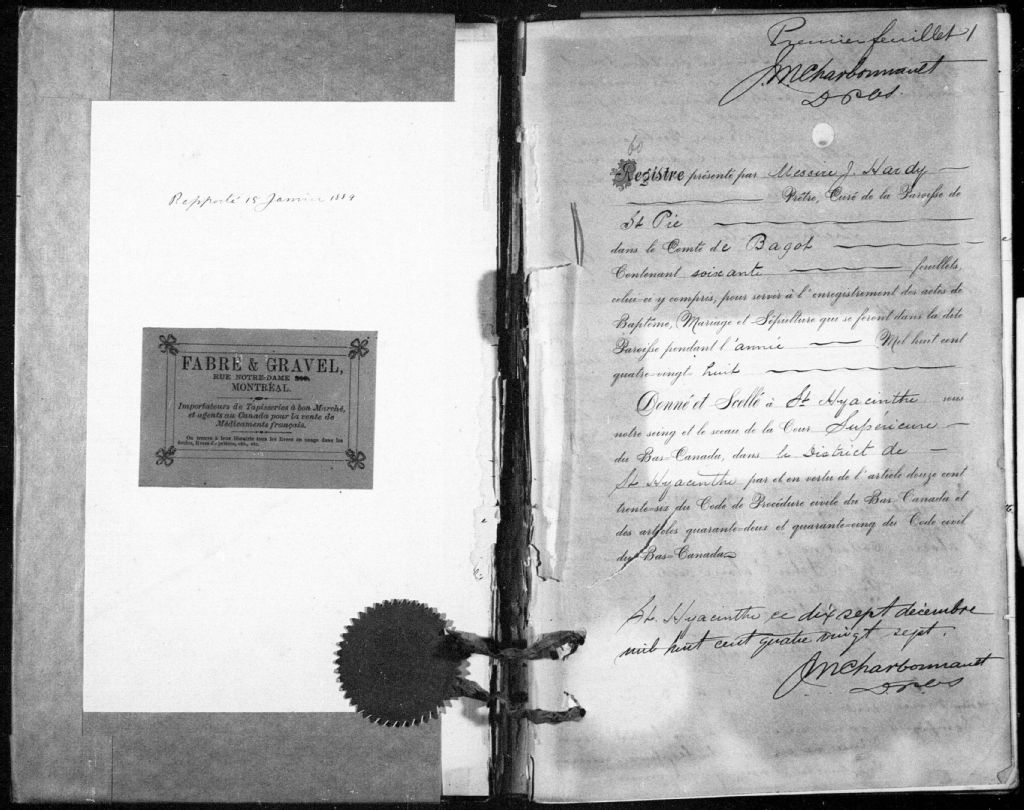 Rapporté 15 Janvier 1889
FABRE & GRAVEL,
RUE NOTRE-DAME
MONTRÉAL.
Importateurs de Tapisseries à bon Marché,
et agents au Canada pour la vente de
Médicaments français.
On trouve à leur librairie tous les livres en usage dans les
écoles, livres de prières, etc., etc.
Premier feuillet 1
J.N. Charbonneault
60
Registre présenté par Messire J. Hardy
Prêtre, Curé de la Paroisse de
St Pie
dans le Comté de Bagot
Contenant soixante feuillets,
celui-ci y compris, pour servir à l'enregistrement des actes de
Baptême, Mariage et Sépulture qui se feront dans la dite
Paroisse pendant l'année Mil huit cent
quatre-vingt huit
Donné et Scellé à St Hyacinthe sous
notre seing et le sceau de la Cour Supérieure
du Bas-Canada, dans le District de
St Hyacinthe par et en vertu de l'article douze cent
trente-six du Code de Procédure civile du Bas-Canada et
des articles quarante-deux et quarante-cinq du Code civil
du Bas-Canada
St. Hyacinthe ce dix sept décembre
mil huit cent quatre vingt sept.
J.N. Charbonneault